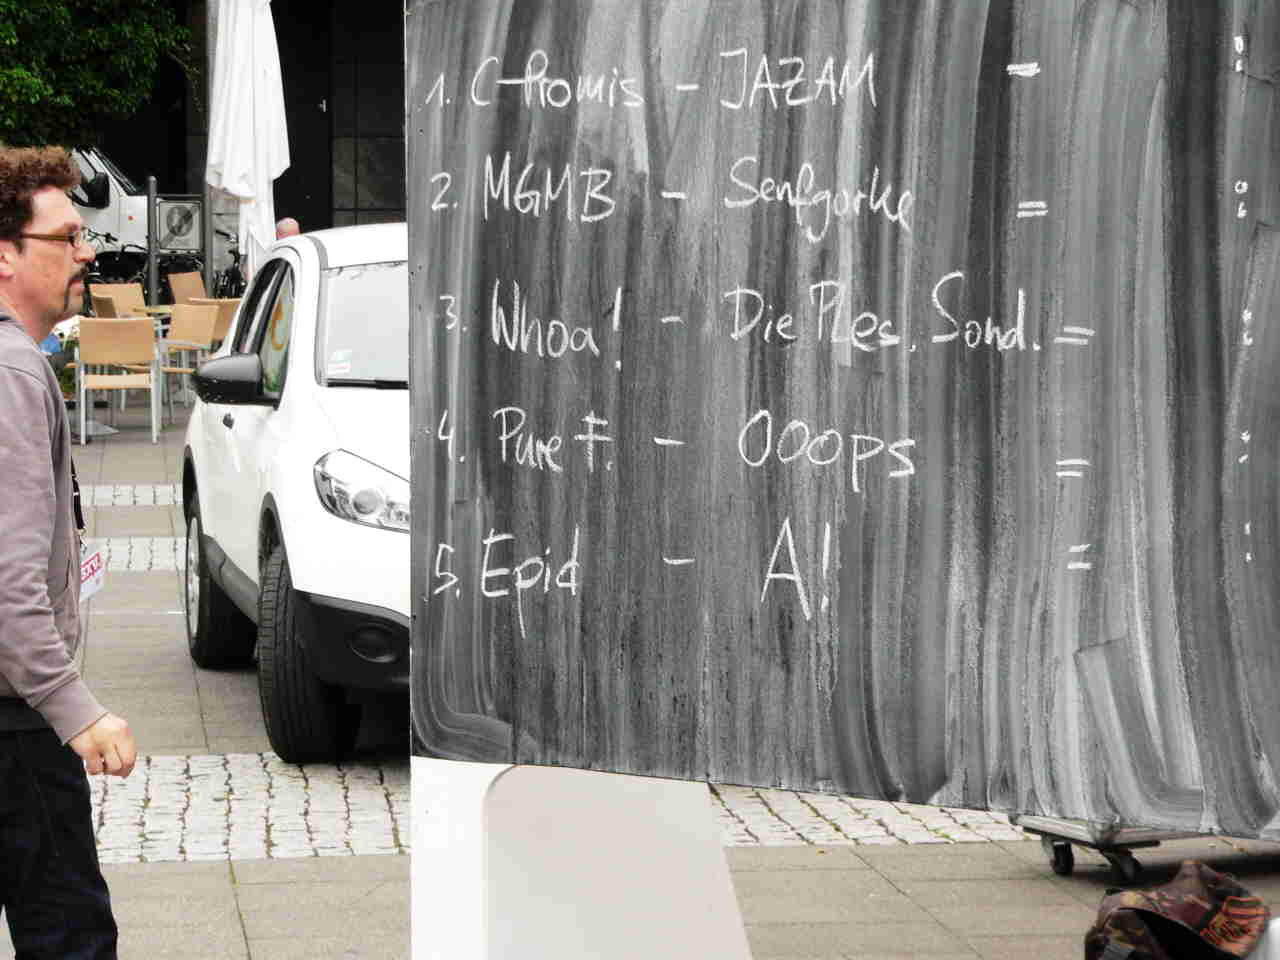 1. C-Promis - JAZAM = :
2. MGMB - Senfgurke = :
3. Whoa! - Die Ples. Sond. = :
4. Pure F. - OOOps = :
5. Epid - A! = :
SXVA